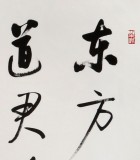 东方
道君